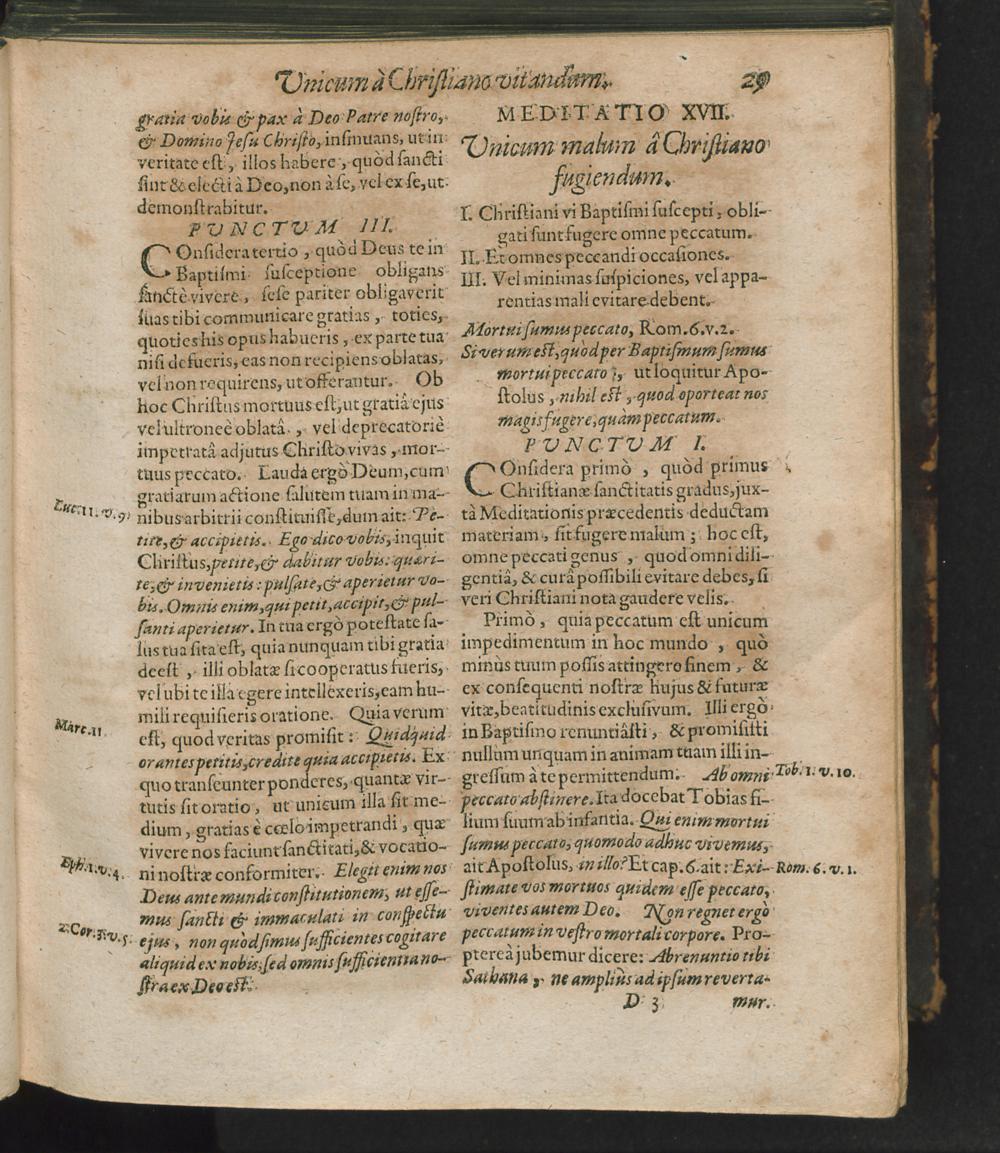 Unicum à Christiano vitandum. 29
gratia vobis & pax à Deo Patre nostro,
& Domino Jesu Christo, insinuans, ut in
veritate est, illos habere, quòd sancti
sint & electi à Deo, non à se, vel ex se, ut
demonstrabitur.
PUNCTUM III.
COnsidera tertio, quòd Deus te in
Baptismi susceptione obligans
sanctè vivere, sese pariter obligaverit
suas tibi communicare gratias, toties,
quoties his opus habueris, ex parte tua
nisi defueris, eas non recipiens oblatas,
vel non requirens, ut offerantur. Ob
hoc Christus mortuus est, ut gratiâ ejus
vel ultroneè oblatâ, vel deprecatoriè
impetratâ adjutus Christo vivas, mor-
tuus peccato. Lauda ergò Deum, cum
gratiarum actione salutem tuam in ma-
Luc. 11. v. 9.
nibus arbitrii constituisse, dum ait: Pe-
tite, & accipietis. Ego dico vobis, inquit
Christus, petite, & dabitur vobis: quæri-
te, & invenietis: pulsate, & aperietur vo-
bis. Omnis enim, qui petit, accipit, & pul-
santi aperietur. In tua ergò potestate sa-
lus tua sita est, quia nunquam tibi gratia
deest, illi oblatæ si cooperatus fueris,
vel ubi te illâ egere intellexeris, eam hu-
mili requisieris oratione. Quia verum
Marc. 11.
est, quod veritas promisit: Quidquid
orantes petitis, credite quia accipietis. Ex
quo transeunter ponderes, quantæ vir-
tutis sit oratio, ut unicum illa sit me-
dium, gratias è cœlo impetrandi, quæ
vivere nos faciunt sanctitati, & vocatio-
Eph. 1. v. 4.
ni nostræ conformiter. Elegit enim nos
Deus ante mundi constitutionem, ut esse-
mus sancti & immaculati in conspectu
2. Cor. 3. v. 5.
ejus, non quòd simus sufficientes cogitare
aliquid ex nobis, sed omnis sufficientia no-
stra ex Deo est.
MEDITATIO XVII.
Unicum malum â Christiano
fugiendum.
I. Christiani vi Baptismi suscepti, obli-
gati sunt fugere omne peccatum.
II. Et omnes peccandi occasiones.
III. Vel minimas suspiciones, vel appa-
rentias mali evitare debent.
Mortui sumus peccato, Rom. 6. v. 2.
Si verum est, quòd per Baptismum sumus
mortui peccato, ut loquitur Apo-
stolus, nihil est, quod oporteat nos
magis fugere, quàm peccatum.
PUNCTUM I.
COnsidera primò, quòd primus
Christianæ sanctitatis gradus, jux-
tà Meditationis præcedentis deductam
materiam, sit fugere malum; hoc est,
omne peccati genus, quod omni dili-
gentiâ, & curâ possibili evitare debes, si
veri Christiani nota gaudere velis.
Primò, quia peccatum est unicum
impedimentum in hoc mundo, quò
minùs tuum possis attingere finem, &
ex consequenti nostræ hujus & futuræ
vitæ, beatitudinis exclusivum. Illi ergò
in Baptismo renuntiâsti, & promisisti
nullum unquam in animam tuam illi in-
gressum à te permittendum. Ab omni
Tob. 1. v. 10.
peccato abstinere. Ita docebat Tobias fi-
lium suum ab infantia. Qui enim mortui
sumus peccato, quomodo adhuc vivemus,
ait Apostolus, in illo? Et cap. 6. ait: Exi-
Rom. 6. v. 1.
stimate vos mortuos quidem esse peccato,
viventes autem Deo. Non regnet ergò
peccatum in vestro mortali corpore. Pro-
ptereà jubemur dicere: Abrenuntio tibi
Sathana, ne ampliùs ad ipsum reverta-
D 3 mur.